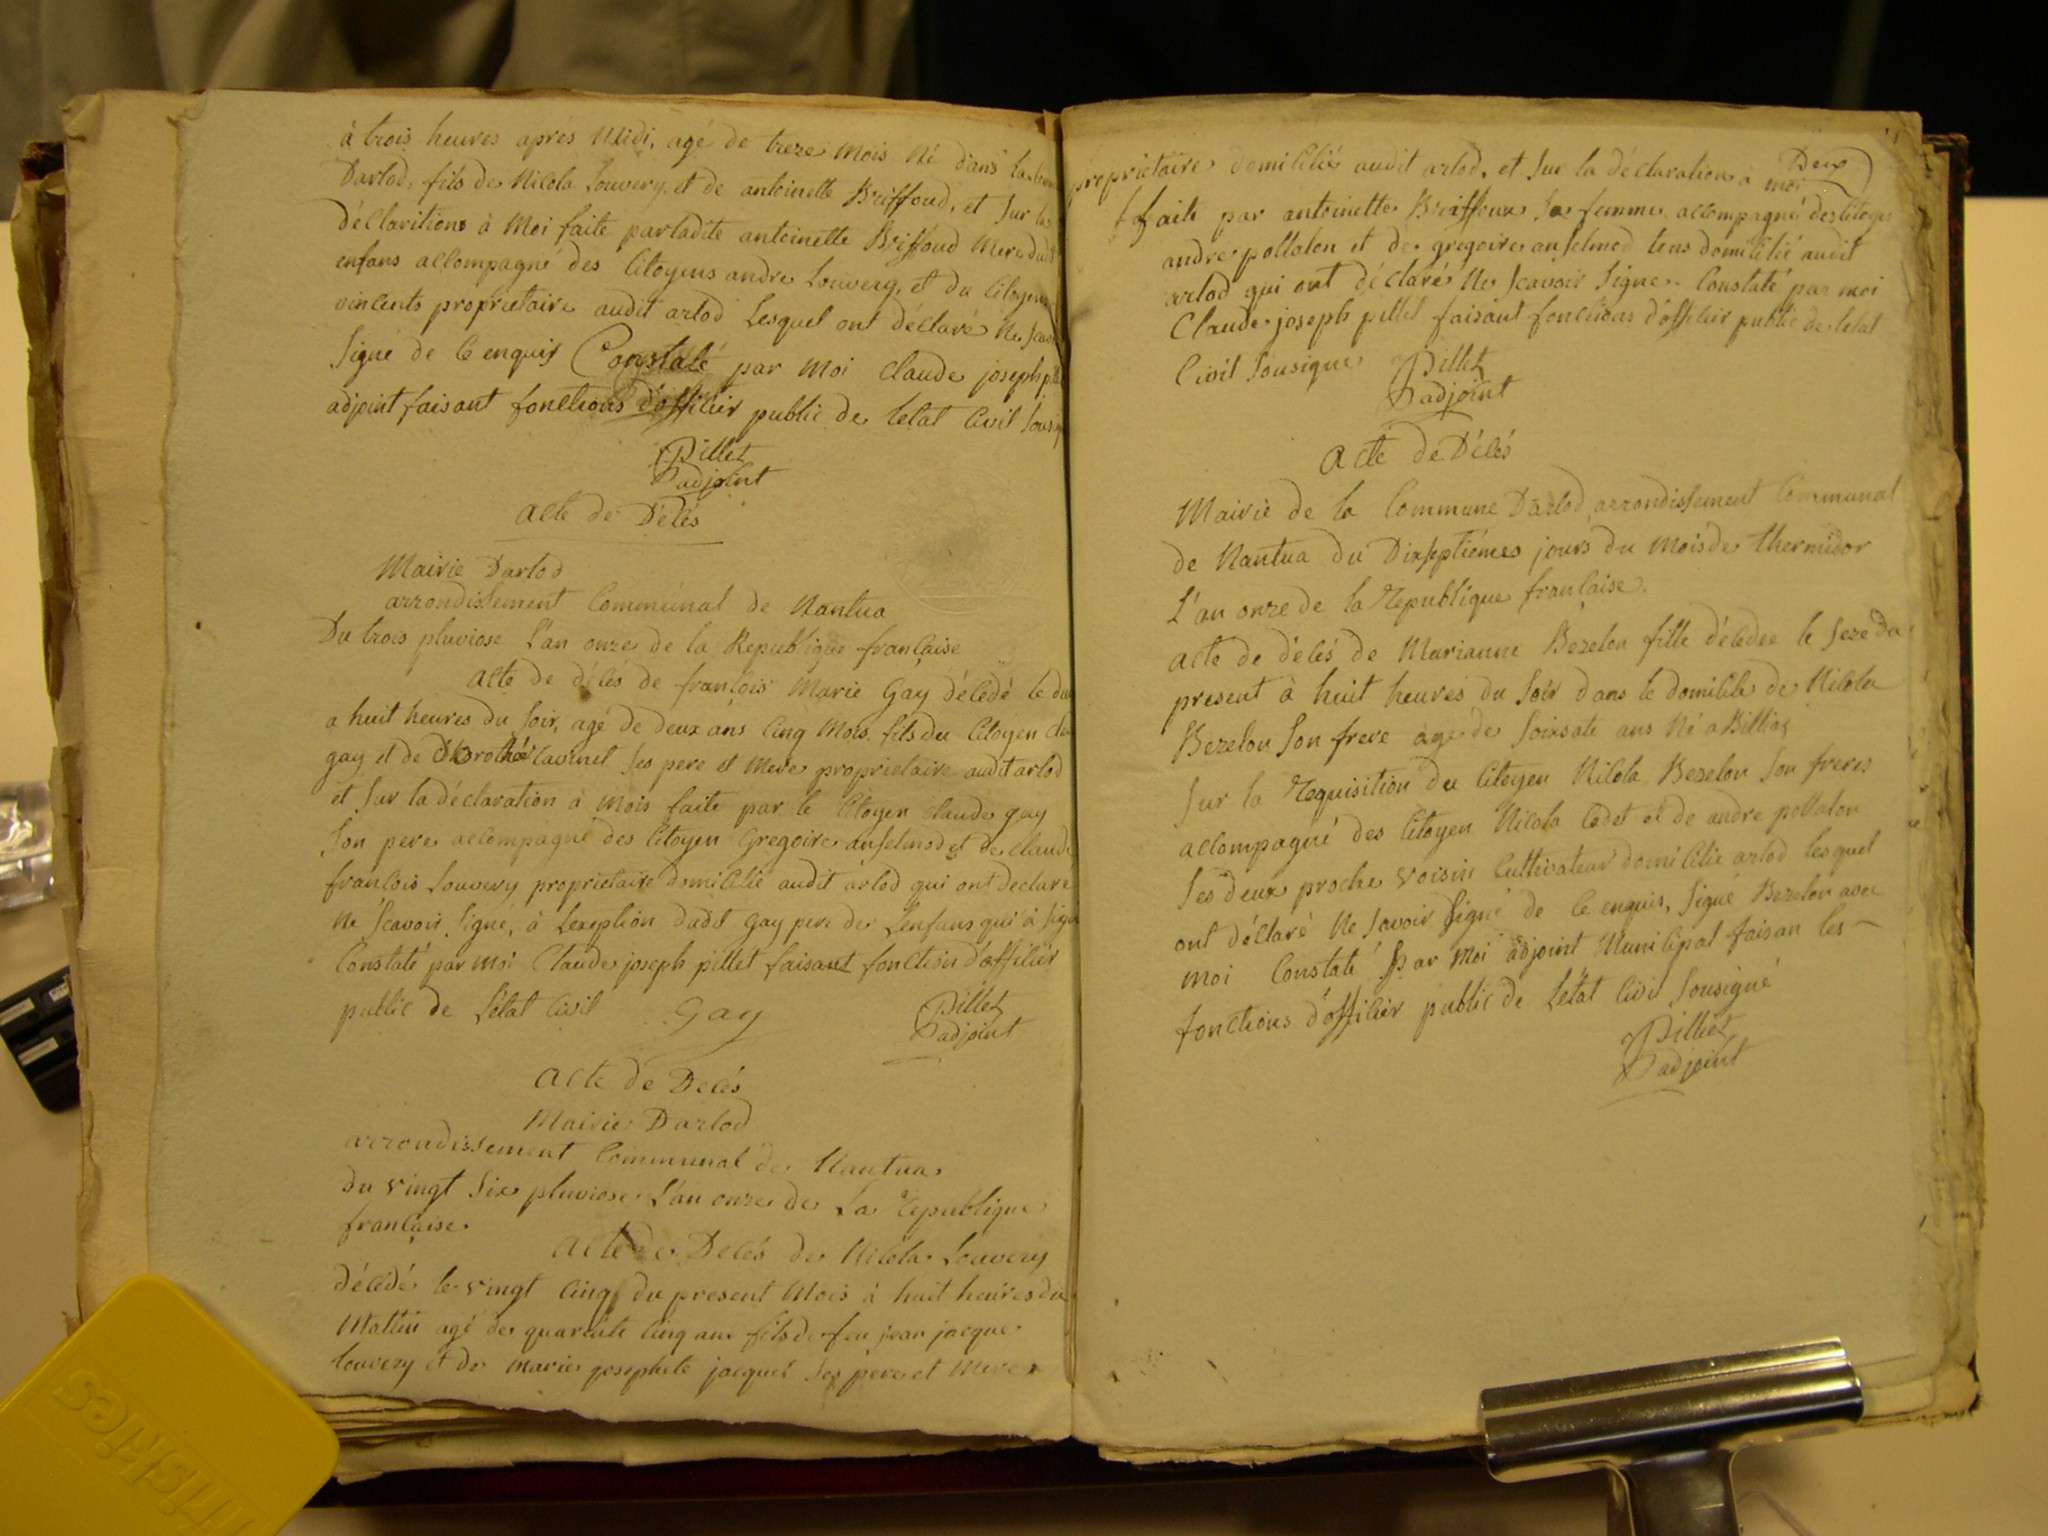 à trois heures après Midi, agé de treze Mois Né dans la
Darlod, fils de Nicola Louvery, et de antoinette Briffoud, et sur les
déclaritions à Moi faite par ladite antoinette Briffoud Mere dudit
enfans accompagné des Citoyens andre Louvery, et du Citoyen
vincents proprietaire audit arlod Lesquel ont déclaré Ne
Signé de ce enquis Constalé par Moi Claude joseph
adjoint faisant fonctions d'officier public de letat Civil
Pillet
adjoint
acte de Décés
Mairie Darlod
arrondissement Communal de Nantua
Du trois pluviose L'an onze de la Republique française
acte de décés de françois Marie Gay décédé le
a huit heures du Soir, agé de deux ans Cinq Mois fils du Citoyen
gay et de Ses pere et Mere proprietaire audit arlod
et Sur la déclaration à Mois faite par le Citoyen Claude gay
Son pere accompagné des Citoyen Gregoire anselmod et de Claude
françois Louvery proprietaire domicilié audit arlod qui ont déclare
Ne Scavoir Signé, à Lexeption dudit gay pere de Lenfans qui à
Constaté par Moi Claude joseph pillet faisant fonction d'officier
public de Létat Civil Gay Pillet
adjoint
acte de Decés
Mairie Darlod
arrondissement Communal de Nantua
du vingt Six pluviose L'an onze de La Republique
française
acte de Decés de Nicola Louvery
décédé le vingt Cinq du present Mois à huit heures du
Mattin agé de quarente Cinq ans fils de feu jean jacque
louvery et de Marie josephete jacquet Ses pere et Mere
Deux
proprietaire domicilié audit arlod, et Sur la déclaration à moi
faite par antoinette Briffoux Sa femme accompagné des Citoyen
andre pollaton et de gregoire anselmod tous domicilié audit
arlod qui ont déclaré Ne Scavoir Signe Constaté par moi
Claude joseph pillet faisant fonctions d'officier public de letat
Civil Sousigne Pillet
adjoint
acte de Décés
Mairie de la Commune Darlod arrondissement Communal
de Nantua du Dixseptiémes jours du Mois de thermidor
L'an onze de la Republique française.
acte de décés de Marianne Bezelon fille décédee le Seze du
present à huit heures du Soir dans le domicile de Nicola
Bezelon Son frere agé de Soixsate ans Né a Billias
Sur la Requisition du Citoyen Nicola Bezelon Son freres
accompagné des Citoyen Nicola Codet et de andre pollaton
Ses deux proche voisin Cultivateur domicilié arlod lesquel
ont déclaré Ne Savoir Signé de ce enquis, Signé Bezelon avec
moi Constaté Par Moi adjoint Municipal faisan les
fonctions d'officier public de Létat Civil Sousigné
Pillet
adjoint